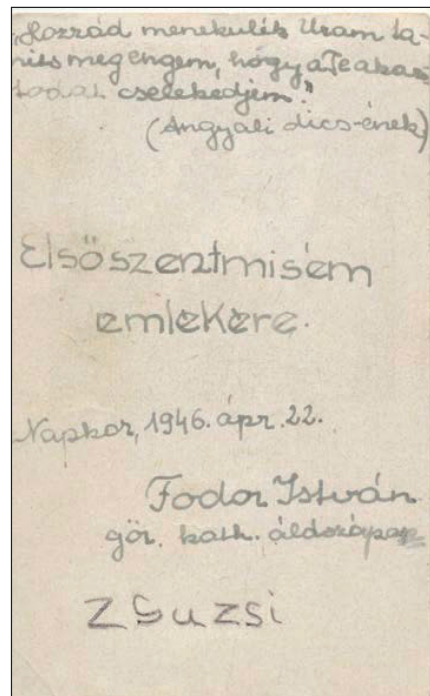 „Hozzád menekülök Uram ta-
níts meg engem, hogy a Te akara-
todat cselekedjem."
(Angyali dics-ének)
Első szentmisém
emlékére.
Napkor, 1946. ápr. 22.
Fodor István
gör. kath. áldozópap
Zsuzsi